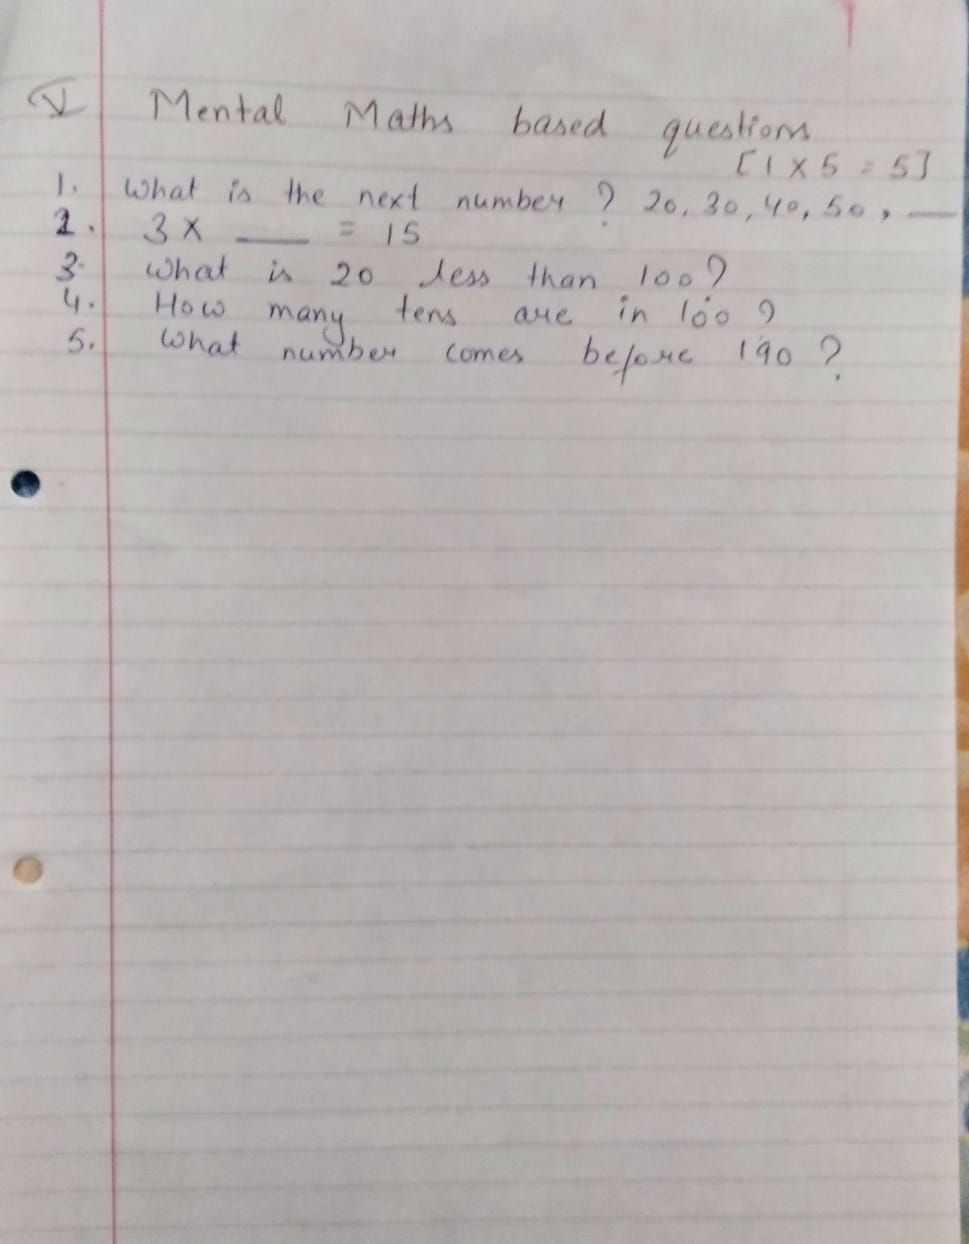 V Mental Maths based questions
[1 X 5 = 5]
1. What is the next number ? 20, 30, 40, 50, __
2. 3 X ___ = 15
3. What is 20 less than 100?
4. How many tens are in 100 ?
5. What number comes before 190 ?